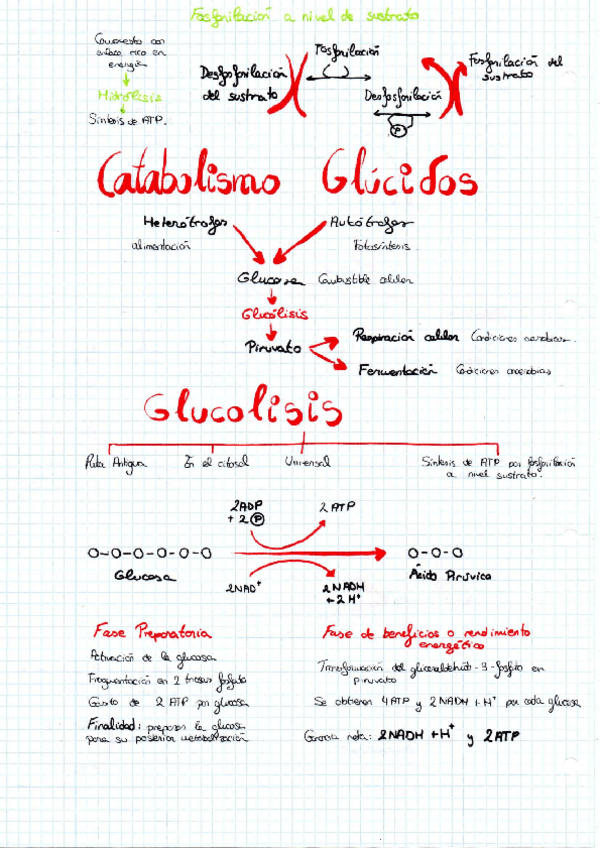 Fosforilación a nivel de sustrato
Compuesto con
enlace rico en
energía
Hidrólisis
Síntesis de ATP.
Desfosforilación
del sustrato
Fosforilación
Desfosforilación
P
Fosforilación del
sustrato
Catabolismo Glúcidos
Heterótrofos
alimentación
Autótrofos
Fotosíntesis
Glucosa Combustible celular
Glucólisis
Piruvato
Respiración celular Condiciones aerobias.
Fermentación Condiciones anaerobias
Glucolisis
Ruta Antigua
En el citosol
Universal
Síntesis de ATP por fosforilación
a nivel sustrato.
2ADP
+ 2 P
2 ATP
O-O-O-O-O-O
Glucosa
O-O-O
Ácido Pirúvico
2NAD+
2NADH
+ 2 H+
Fase Preparatoria
Activación de la glucosa
Fragmentación en 2 triosas fosfato
Gasto de 2 ATP por glucosa
Finalidad: preparar la glucosa
para su posterior metabolización
Fase de beneficios o rendimiento
energético
Transformación del gliceraldehído-3-fosfato en
piruvato
Se obtienen 4 ATP y 2 NADH + H+ por cada glucosa
Ganancia neta: 2NADH + H+ y 2ATP